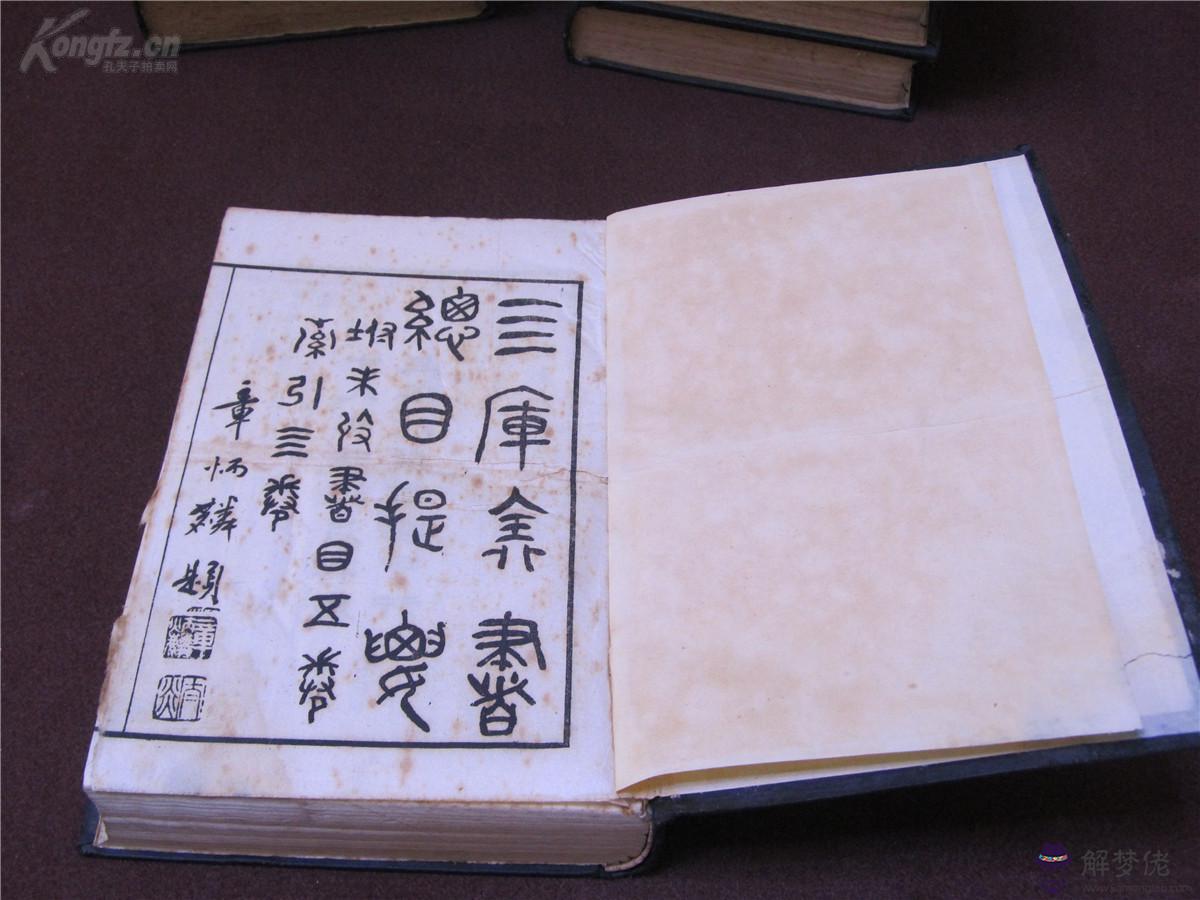 Kongfz.cn
孔夫子拍卖网
亖庫全書
總目提要
坿未收書目五卷
索引亖卷
章炳麟題
解梦佬